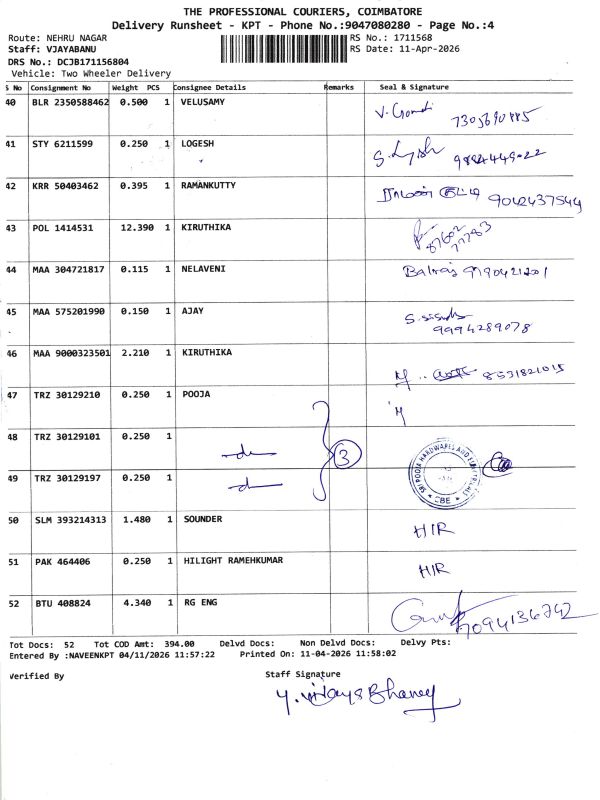 THE PROFESSIONAL COURIERS, COIMBATORE
Delivery Runsheet - KPT - Phone No.:9047080280 - Page No.:4
Route: NEHRU NAGAR
RS No.: 1711568
Staff: VJAYABANU
RS Date: 11-Apr-2026
DRS No.: DCJB171156804
Vehicle: Two Wheeler Delivery
S No Consignment No Weight PCS Consignee Details Remarks Seal & Signature
40 BLR 2350588462 0.500 1 VELUSAMY
41 STY 6211599 0.250 1 LOGESH
42 KRR 50403462 0.395 1 RAMANKUTTY 9042437544
43 POL 1414531 12.390 1 KIRUTHIKA
44 MAA 304721817 0.115 1 NELAVENI Balraj
45 MAA 575201990 0.150 1 AJAY
9994289078
46 MAA 9000323501 2.210 1 KIRUTHIKA 8531821015
47 TRZ 30129210 0.250 1 POOJA
48 TRZ 30129101 0.250 1
3
SRI POOJA HARDWARES AND ELECTRICALS
CBE
49 TRZ 30129197 0.250 1
50 SLM 393214313 1.480 1 SOUNDER HIR
51 PAK 464406 0.250 1 HILIGHT RAMEHKUMAR HIR
52 BTU 408824 4.340 1 RG ENG 7094136742
Tot Docs: 52 Tot COD Amt: 394.00 Delvd Docs: Non Delvd Docs: Delvy Pts:
Entered By :NAVEENKPT 04/11/2026 11:57:22 Printed On: 11-04-2026 11:58:02
Verified By
Staff Signature